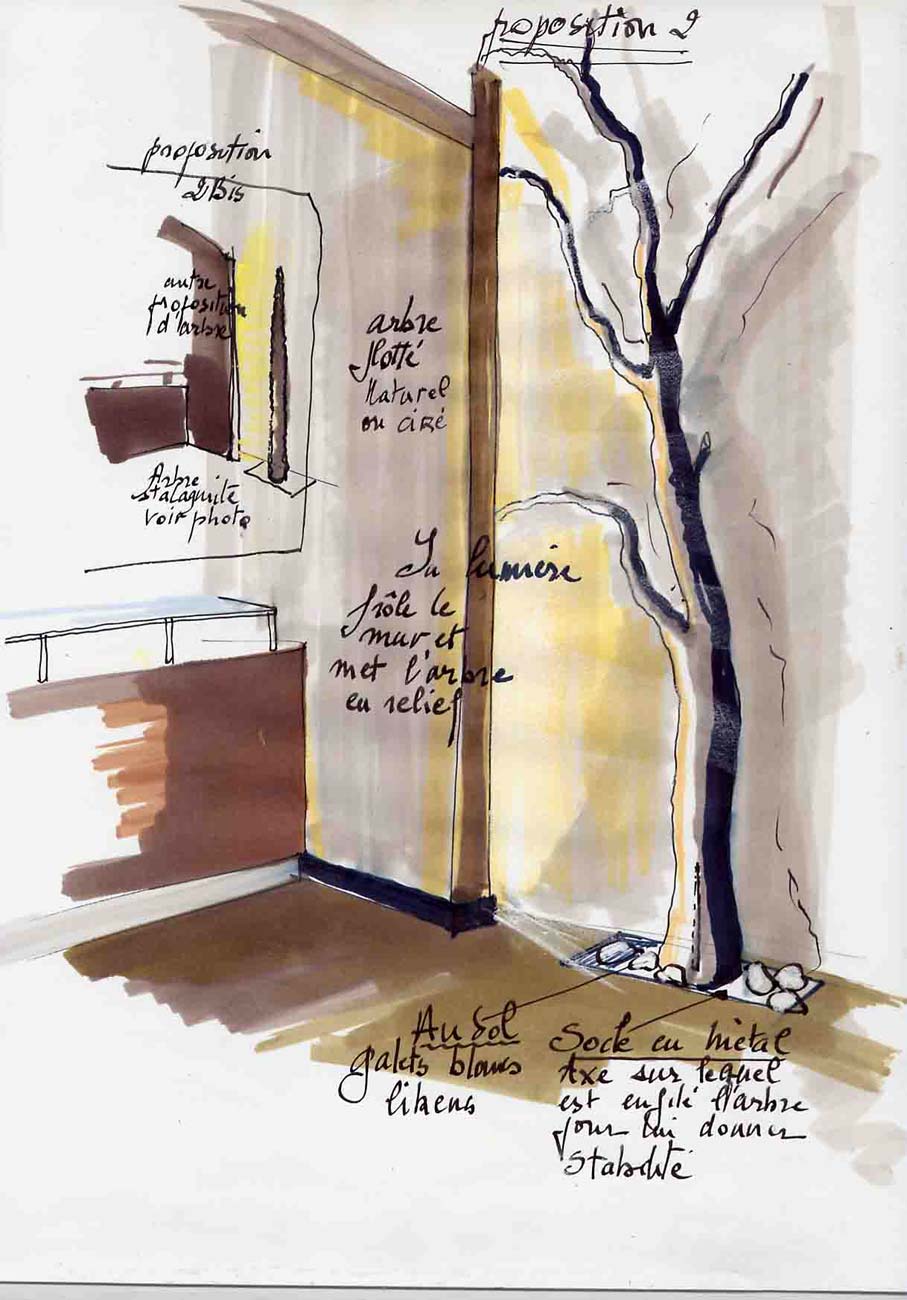 proposition 2
proposition
2Bis
autre
proposition
d'arbre
Arbre
stalagmite
voir photo
arbre
flotté
Naturel
ou ciré
La lumière
frôle le
mur et
met l'arbre
en relief
Au Sol
galets blancs
likens
Socle en métal
Axe sur lequel
est enfilé l'arbre
pour lui donner
stabilité